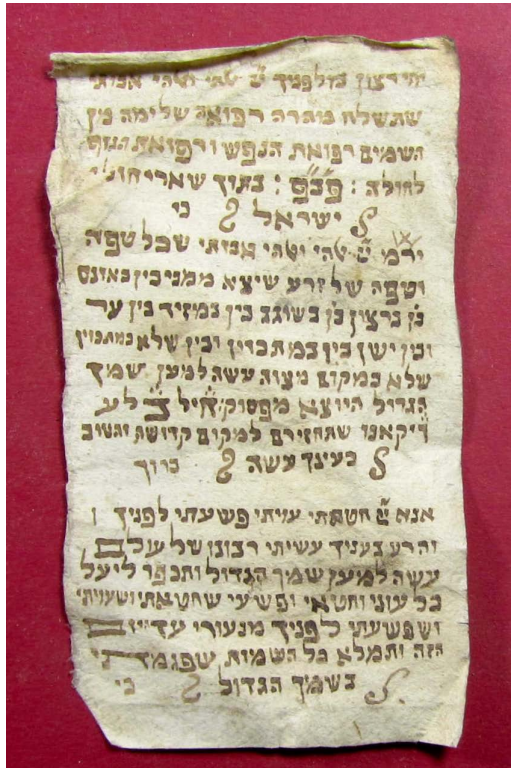 יהי רצון מלפניך יי אלהי ואלהי אבותי
שתשלח מהרה רפואה שלימה מן
השמים רפואת הנפש ורפואת הגוף
לחולה : פב״פ : בתוך שאר חולי
ישראל כי
יר״מ יי אלהי ואלהי אבותי שכל טפה
וטפה של זרע שיצא ממני בין באונס
בין ברצון בין בשוגג בין במזיד בין ער
ובין ישן בין במתכוין ובין שלא במתכוין
שלא במקום מצוה עשה למען שמך
הגדול היוצא מפסוק חיל בלע
ויקאנו שתחזירם למקום קדושה והטוב
בעיניך עשה ברוך
אנא יי חטאתי עויתי פשעתי לפניך
והרע בעניך עשיתי רבונו של עולם
עשה למען שמך הגדול ותכפר לי על
כל עוני וחטאי ופשעי שחטאתי ושעויתי
ושפשעתי לפניך מנעורי עד היום
הזה ותמלא כל השמות שפגמתי
בשמיך הגדול כי